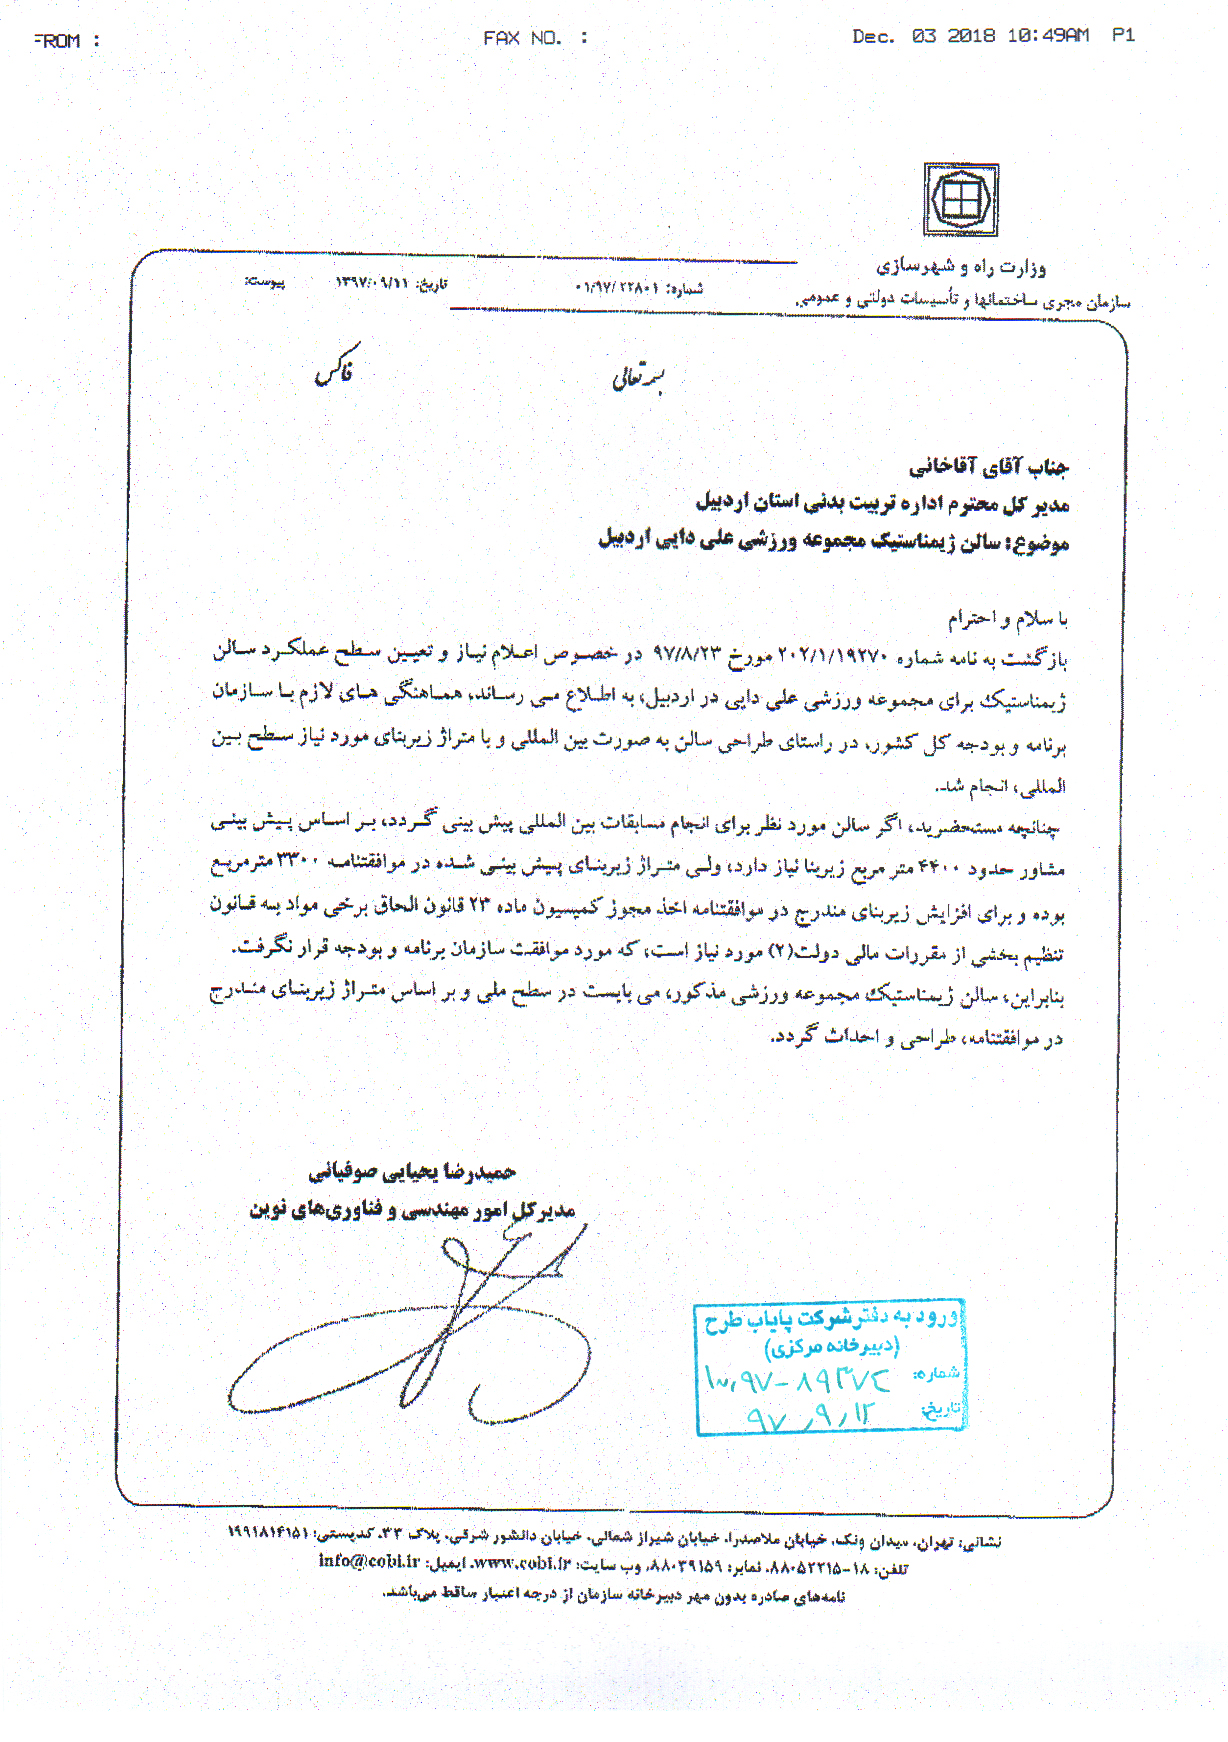 FROM :
FAX NO. :
Dec. 03 2018 10:49AM P1
وزارت راه و شهرسازی
سازمان مجری ساختمانها و تأسیسات دولتی و عمومی
شماره: ۰۱/۹۷/۲۲۸۰۱
تاریخ: ۱۳۹۷/۰۹/۱۱
پیوست:
بسمه تعالی
فاکس
جناب آقای آقاخانی
مدیر کل محترم اداره تربیت بدنی استان اردبیل
موضوع: سالن ژیمناستیک مجموعه ورزشی علی دایی اردبیل
با سلام و احترام
بازگشت به نامه شماره ۲۰۲/۱/۱۹۲۷۰ مورخ ۹۷/۸/۲۳ در خصوص اعلام نیاز و تعیین سطح عملکرد سالن
ژیمناستیک برای مجموعه ورزشی علی دایی در اردبیل، به اطلاع می رساند، هماهنگی های لازم با سازمان
برنامه و بودجه کل کشور، در راستای طراحی سالن به صورت بین المللی و با متراژ زیربنای مورد نیاز سطح بین
المللی، انجام شد.
چنانچه مستحضرید، اگر سالن مورد نظر برای انجام مسابقات بین المللی پیش بینی گردد، بر اساس پیش بینی
مشاور حدود ۴۴۰۰ متر مربع زیربنا نیاز دارد، ولی متراژ زیربنای پیش بینی شده در موافقتنامه ۳۳۰۰ مترمربع
بوده و برای افزایش زیربنای مندرج در موافقتنامه اخذ مجوز کمیسیون ماده ۲۳ قانون الحاق برخی مواد به قانون
تنظیم بخشی از مقررات مالی دولت(۲) مورد نیاز است، که مورد موافقت سازمان برنامه و بودجه قرار نگرفت.
بنابراین، سالن ژیمناستیک مجموعه ورزشی مذکور، می بایست در سطح ملی و بر اساس متراژ زیربنای مندرج
در موافقتنامه، طراحی و احداث گردد.
حمیدرضا یحیایی صوفیانی
مدیرکل امور مهندسی و فناوری‌های نوین
ورود به دفتر شرکت پایاب طرح
(دبیرخانه مرکزی)
شماره:
تاریخ: ۹۷/۹/۱۲
نشانی: تهران، میدان ونک، خیابان ملاصدرا، خیابان شیراز شمالی، خیابان دانشور شرقی، پلاک ۳۳، کدپستی: ۱۹۹۱۸۱۴۱۵۱
تلفن: ۱۸-۸۸۰۵۲۲۱۵، نمابر: ۸۸۰۳۹۱۵۹، وب سایت: www.cobi.ir، ایمیل: info@cobi.ir
نامه‌های صادره بدون مهر دبیرخانه سازمان از درجه اعتبار ساقط می‌باشد.